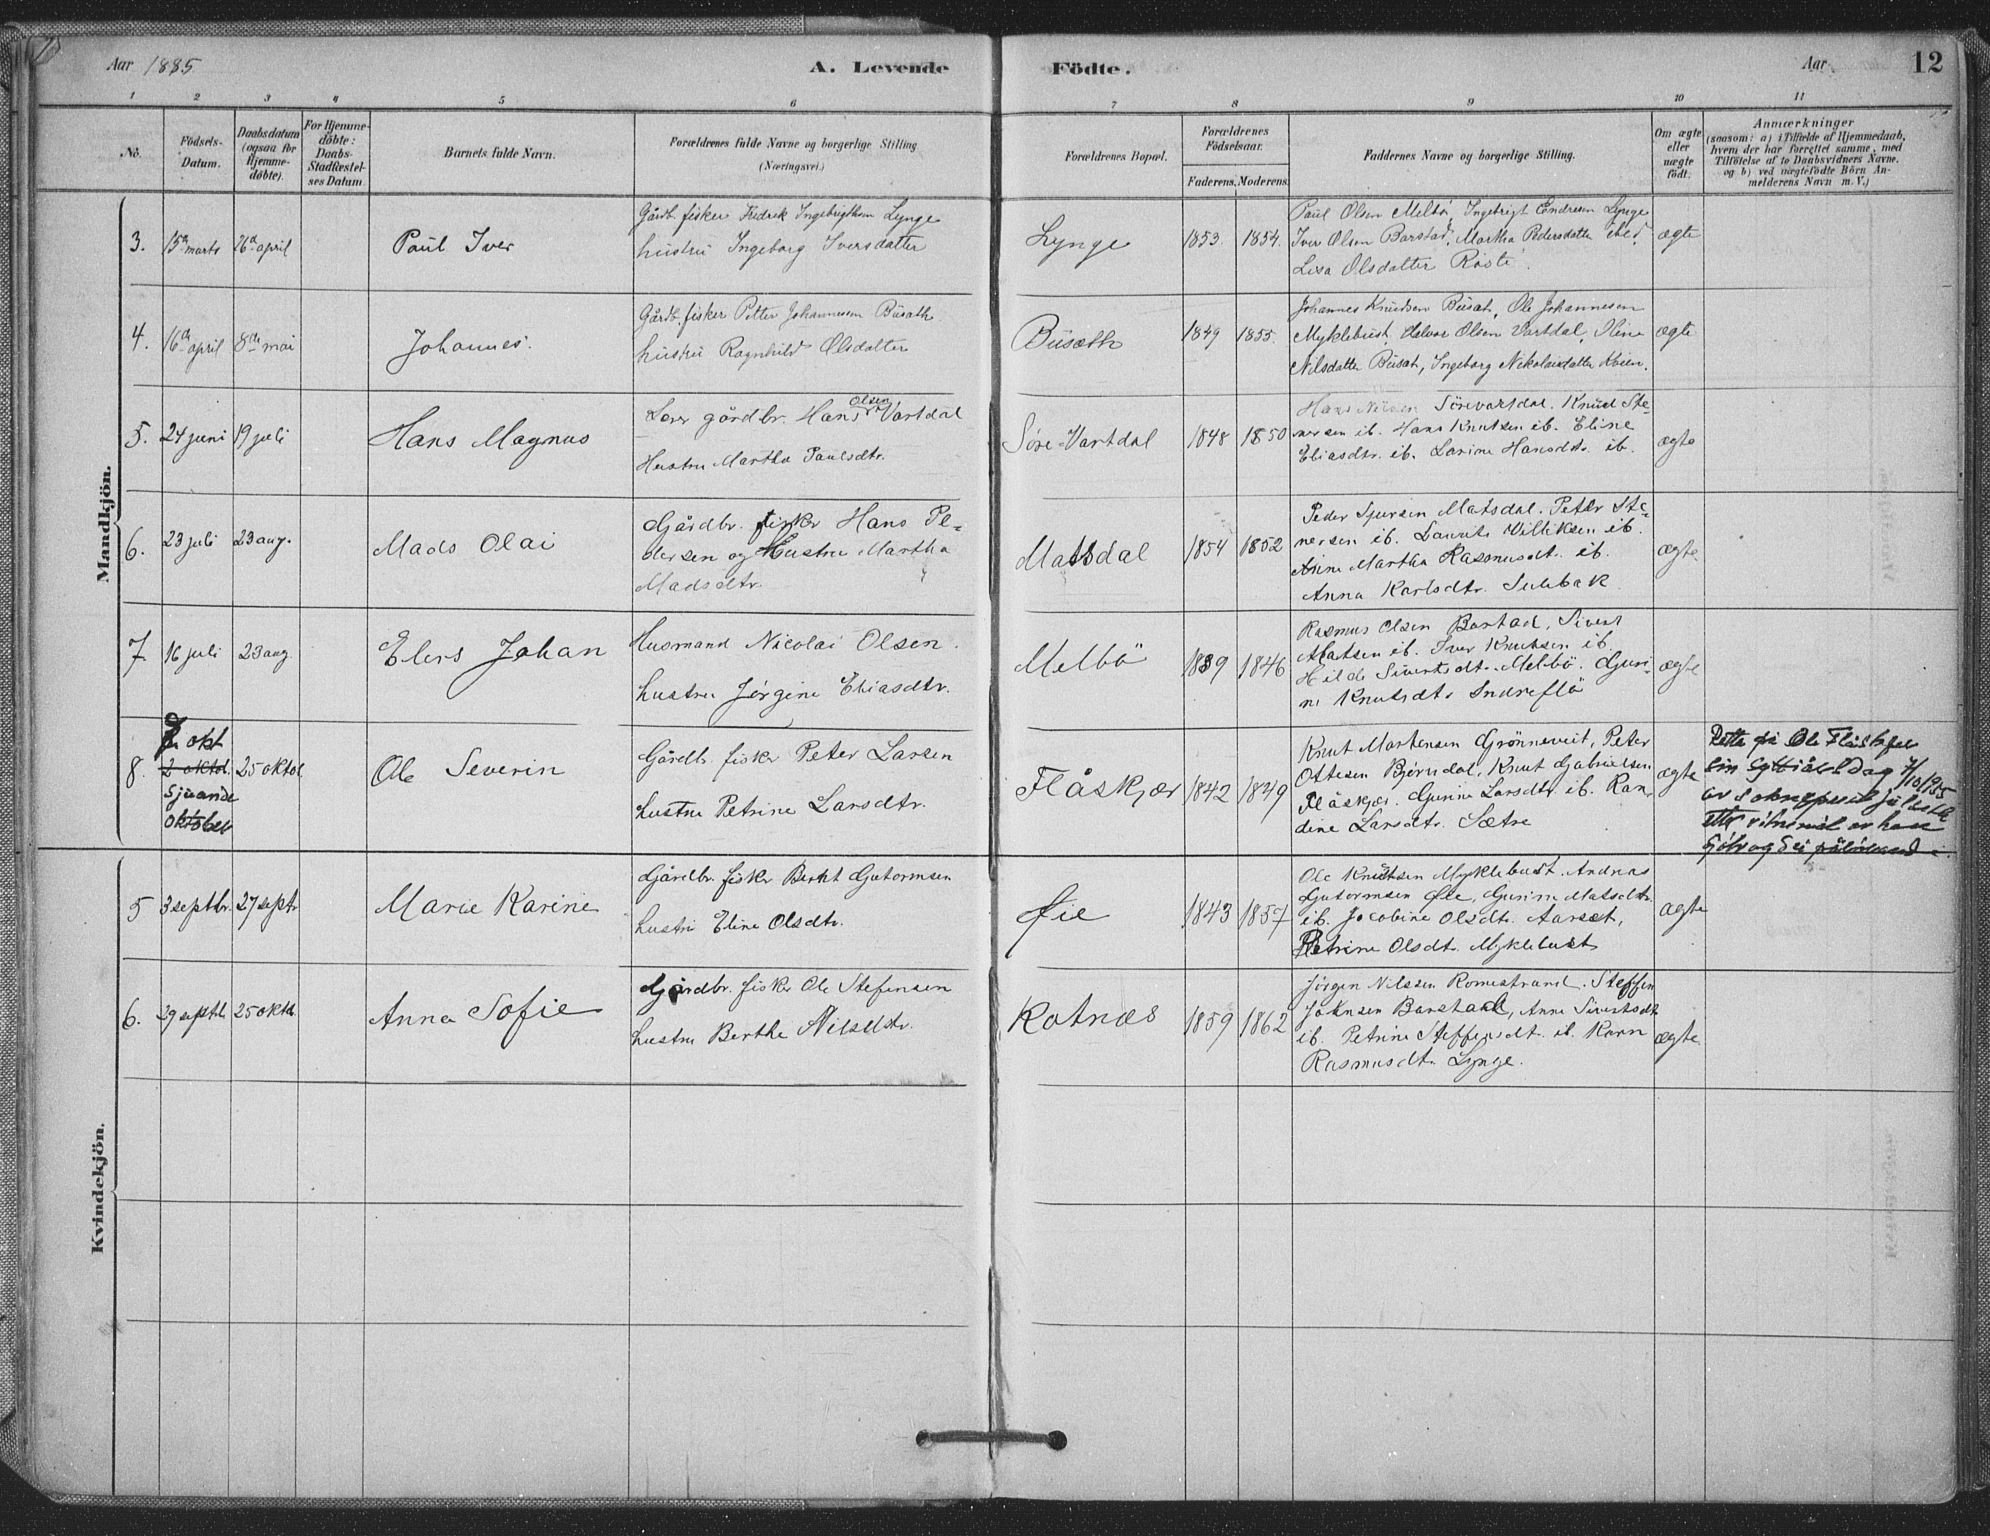 Aar 1885
A. Levende Födte.
Aar
12
1 2 3 4 5 6 7 8 9 10 11
No.
Födsels-Datum.
Daabsdatum (ogsaa for Hjemme-döbte).
For Hjemme-döbte: Daabs-Stadfæstel-ses Datum
Barnets fulde Navn.
Forældrenes fulde Navne og borgerlige Stilling (Næringsvei.)
Forældrenes Bopæl.
Forældrenes Födselsaar.
Faderens. Moderens.
Faddernes Navne og borgerlige Stilling.
Om ægte eller uægte födt.
Anmærkninger
(saasom: a) i Tilfælde af Hjemmedaab,
hvem der har forrettet samme, med
Tilföielse af to Daabsvidners Navne.
og b) ved uægtefödte Börn An-
melderens Navn m. V.)
Mandkjön.
3. 15de marts 26de april
Paul Iver
Gårdb. fisker Fredrik Ingebrigtsen Lynge
hustru Ingeborg Iversdatter
Lynge
1853. 1854.
Paul Olsen Melbö, Ingebrigt Endresen Lynge
Iver Olsen Barstad, Martha Pedersdatter ibed,
Lisa Olsdatter Röste.
ægte
4. 16de april 8de mai
Johannes.
Gårdb. fisker Petter Johannesen Busæth
hustru Ragnhild Olsdatter
Busæth
1849 1855.
Johannes Knudsen Busæt, Ole Johannesen
Myklebust, Halvor Olsen Vartdal, Oline
Nilsdatter Busæt, Ingeborg Nikolaisdatter Kveen.
ægte
5. 24 juni 19 juli
Hans Magnus
gårdbr. Hans Olsen Vartdal
Hustru Martha Paulsdtr.
Søre-Vartdal
1848 1850
Hans Nilsen Sörevartdal. Knud Ste-
nersen ib. Hans Knutsen ib. Eline
Eliasdtr. ib. Larine Hansdtr. ib.
ægte
6. 23 juli 23 aug.
Mads Olai
Gårdbr. fisker Hans Pe-
dersen og Hustru Martha
Madsdtr.
Matsdal
1854 1852
Peder Sjursen Matsdal. Peter Ste-
nersen ib. Laurits Villiksen ib.
Anine Martha Rasmusdt. ib.
Anna Karlsdtr. Sulebak
ægte.
7. 16 juli 23 aug.
Elers Johan
Husmand Nicolai Olsen.
hustru Jörgine Eliasdtr.
Melbö
1839 1846
Rasmus Olsen Barstad, Sivert
Matsen ib. Iver Knutsen ib.
Hilde Sivertsdt. Melbö. Guri-
ne Knutsdt. Indreflö
ægte
7 okt
8. 2 oktob. 25 oktob.
Sjuande
oktober
Ole Severin
Gårdbr. fisker Peter Larsen
hustru Petrine Larsdtr.
Flåskjær
1842 1849
Knut Mortensen Grönneveit, Peter
Ottesen Björndal, Knut Gabrielsen
Flåskjær. Gurine Larsdtr. ib. Ran-
dine Larsdtr. Sætre
ægte
Ole
sin dag 7/10 1935
av sokneprest
etter av
Kvindekjön.
5 3 septbr. 27 septr.
Marie Karine
Gårdbr. fisker Bernt Gutormsen
hustru Eline Olsdtr.
Øie
1843 1857
Ole Knutsen Myklebust. Andreas
Gutormsen Øie, Gurine Matsdtr.
ib. Jacobine Olsdtr. Aarset,
Petrine Olsdtr. Myklebust
ægte
6. 29 septb. 25 oktob.
Anna Sofie
Gårdbr. fisker Ole Stefensen
hustru Berthe Nilsdtr.
Rotnæs
1859 1862
Jörgen Nilssen Romestrand. Steffen
Johnsen Barstad, Anne Sivertsdt.
ib. Petrine Steffensdt. ib. Karn
Rasmusdt. Lynge.
ægte.